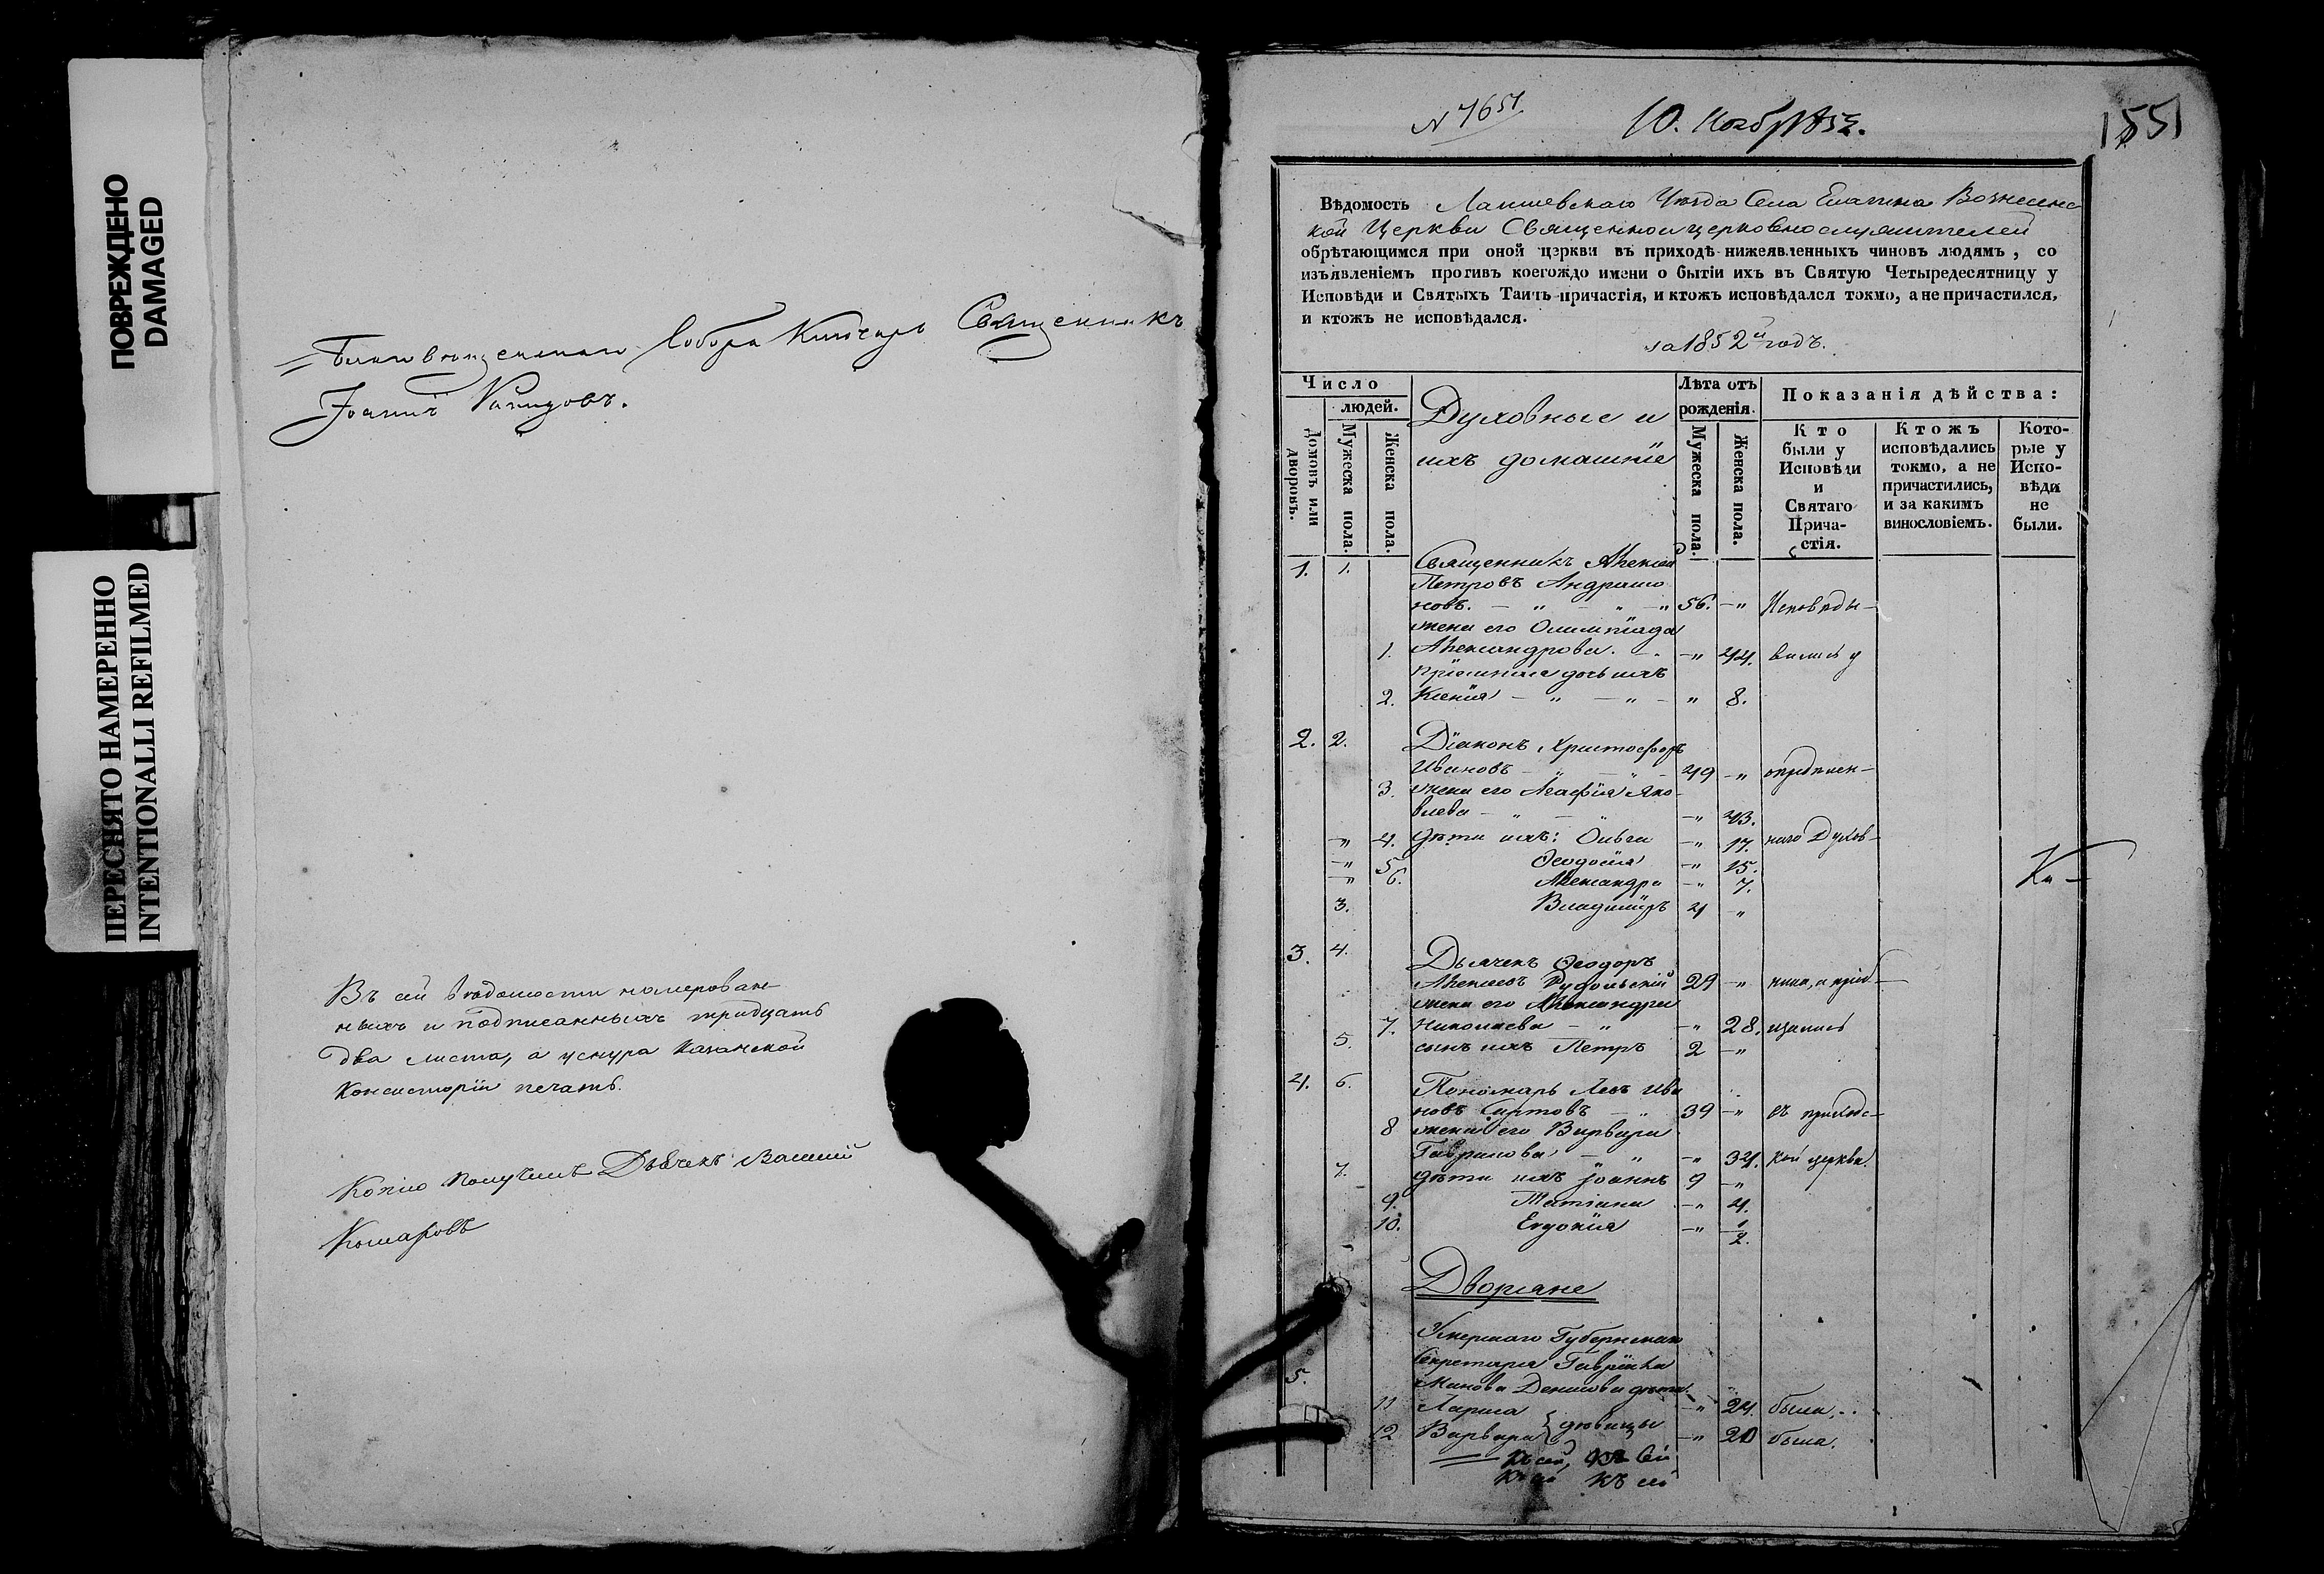 ПОВРЕЖДЕНО
DAMAGED
ПЕРЕСНЯТО НАМЕРЕННО
INTENTIONALLI REFILMED
Благовещенскаго Собора Ключарь Священникъ
Іоаннъ
Въ сей ведомости нумерован-
ныхъ и подписанныхъ тридцать
два листа, а у снура Казанской
Консисторіи печать.
Копію получилъ Дьячекъ Василий
Комаровъ
N 7651.
10. Ноябр 1852.
1551
Вѣдомость Лаишевскаго Уѣзда Села Емагина Вознесенс
кой Церкви Священно и церковнослужителей
обрѣтающимся при оной церкви въ приходѣ нижеявленныхъ чиновъ людямъ, со
изъявленіемъ противъ коегождо имени о бытіи ихъ въ Святую Четыредесятницу у
Исповѣди и Святыхъ Таинъ причастія, и ктожъ исповѣдался токмо, а не причастился,
и ктожъ не исповѣдался.
за 1852й годъ.
Число
людей.
Домовъ или дворовъ.
Мужеска пола.
Женска пола.
Духовные и
ихъ домашніе
Лѣта отъ
рожденія.
Мужеска пола.
Женска пола.
Показанія дѣйства:
Кто
были у
Исповѣди
и
Святаго
Прича-
стія.
Ктожъ
исповѣдались
токмо, а не
причастились,
и за какимъ
винословіемъ.
Кото-
рые у
Испо-
вѣди
не
были.
1. 1. Священникъ Алексѣй
Петровъ Андроно
новъ. — " — " — " 56. — " Исповѣды—
жена его Олимпіада
1. Александрова. — " 44. вались у
пріемная дочь ихъ
2. Ксенія — " — " — " 8.
2. 2. Діаконъ Христофоръ
Ивановъ — " — " — 49 — "
3. жена его Агафія Яко-
влева — " — " — " 43.
— " 4. дѣти ихъ: Ольга — " 17. наго Духов—
— " 5 Ѳеодосія — " 15.
— " 6. Александра — " 7. Ка—
3. Владиміръ 4 — "
3. 4. Дьячекъ Ѳеодоръ
Алексѣевъ 29 — " ника, и пріоб—
жена его Александра
7. Николаева — " — " 28. щались
5. сынъ ихъ Петръ 2 — "
4. 6. Пономарь Левъ Ива
новъ — " 39 — " въ приходс—
8 жена его Варвара
Гаврилова — " — " 34. кой церкви.
7. дѣти ихъ Іоаннъ 9 — "
9. Татіана — " 4.
10. Евдокія — " 1/2.
Дворяне
Умершаго Губернскаго
Секретаря Гавріила
5. Денисова дѣти
11 Лариса — " 24. была.
12 Варвара } дѣвицы — " 20 была.
Къ сей, къ сей
Къ сей къ сей